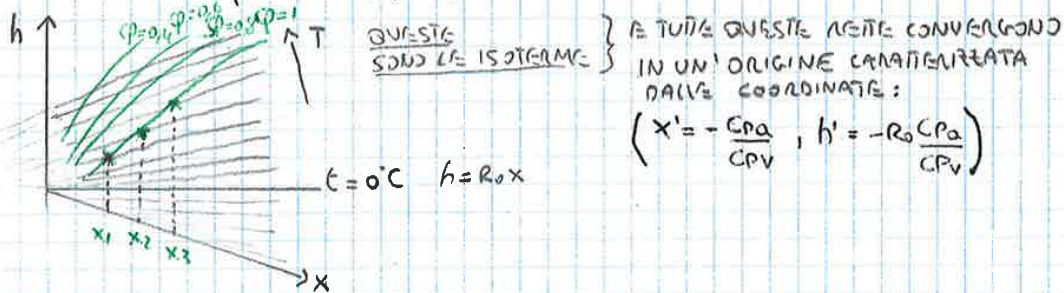 h
φ=0,4 φ=0,6 φ=0,8 φ=1
T
QUESTE
SONO LE ISOTERME
E TUTTE QUESTE RETTE CONVERGONO
IN UN' ORIGINE CARATTERIZZATA
DALLE COORDINATE:
(x' = - CPa/CPV , h' = -R₀ CPa/CPV)
t = 0°C h = R₀x
x1 x2 x3
x